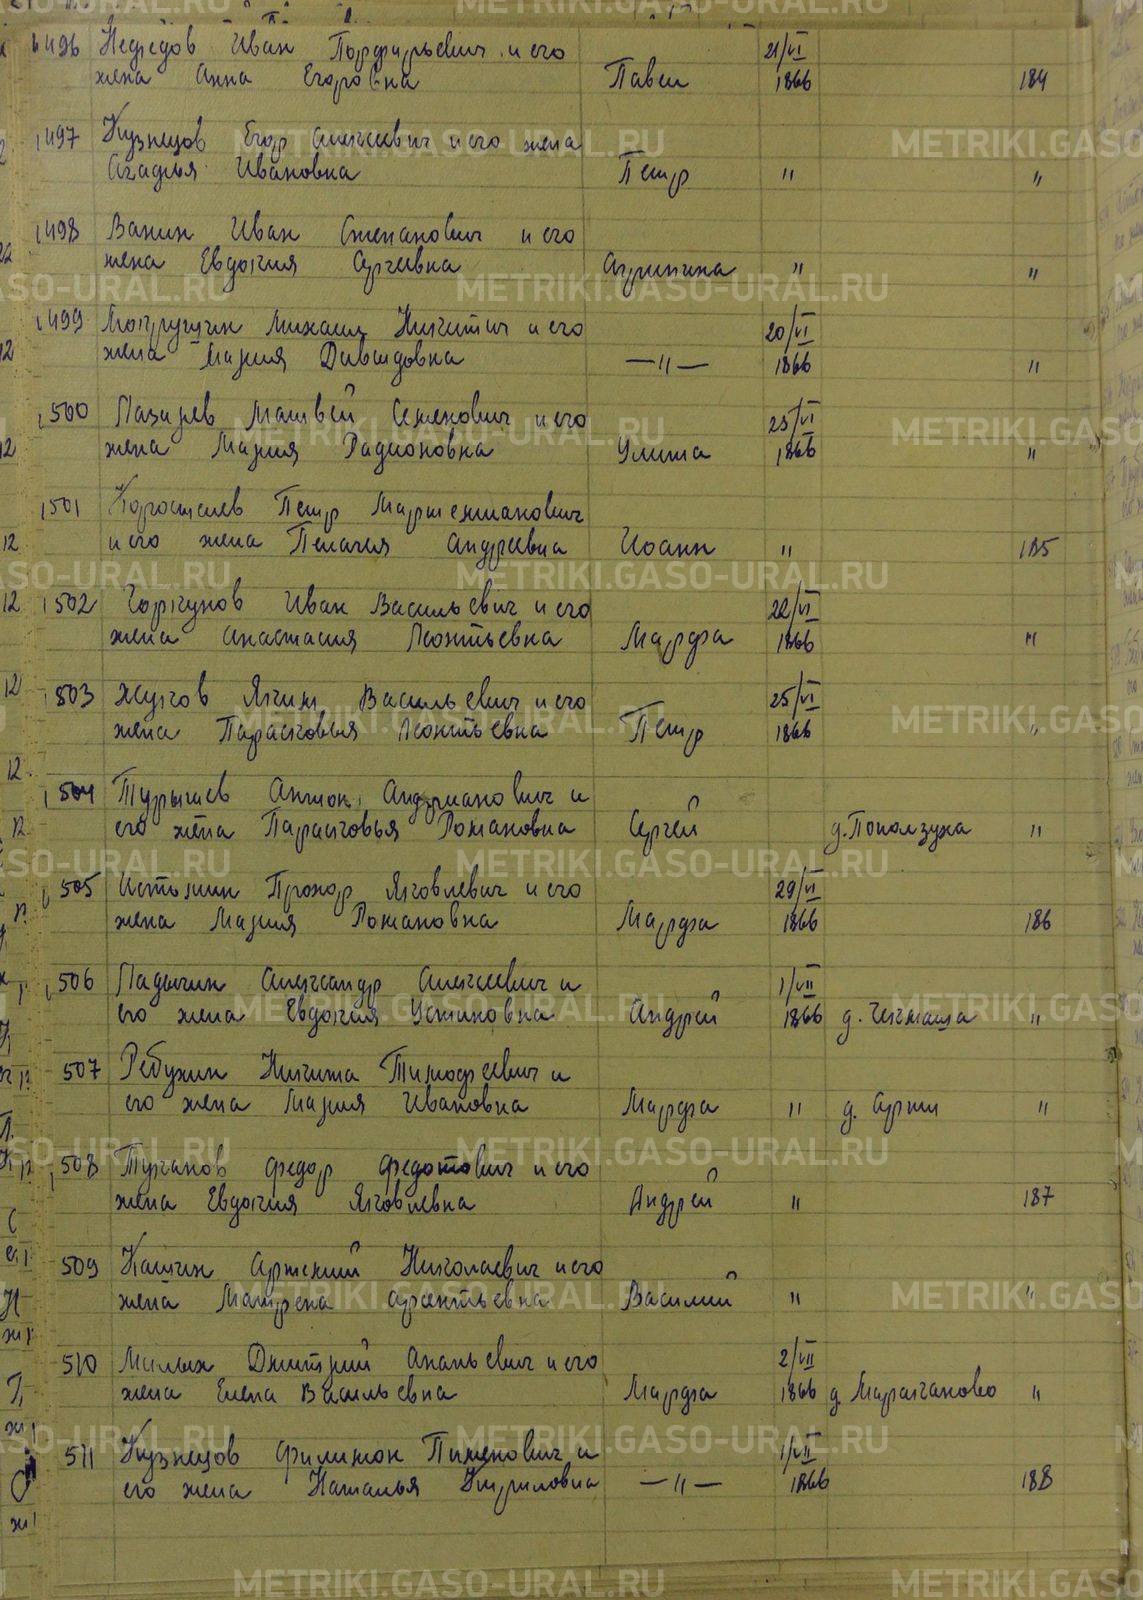 496 Нефедов Иван Порфирьевич и его 21/VI
жена Анна Егоровна Павел 1866 184
497 Кузнецов Егор Алексеевич и его жена
Агафья Ивановна Петр " "
498 Ванин Иван Степанович и его
жена Евдокия Сергеевна Агрипина " "
499 Михаил Никитич и его 20/VI
жена Мария Давыдовна —"— 1866 "
500 Лазарев Матвей Семенович и его 25/VI
жена Мария Радионовна Улита 1866 "
501 Коростелев Петр
и его жена Пелагея Андреевна Иоанн " 185
502 Горбунов Иван Васильевич и его 22/VI
жена Анастасия Леонтьевна Марфа 1866 "
503 Жуков Яким Васильевич и его 25/VI
жена Парасковья Леонтьевна Петр 1866 "
504 Турышев Антон Андрианович и
его жена Парасковья Романовна Сергей д. Поползуха "
505 Истомин Прохор Яковлевич и его 29/VI
жена Мария Романовна Марфа 1866 186
506 Ладыгин Александр Алексеевич и 1/VII
его жена Евдокия Устиновна Андрей 1866 д. Чекмаша "
507 Ребухин Никита Тимофеевич и
его жена Мария Ивановна Марфа " д. "
508 Туканов Федор Федотович и его
жена Евдокия Яковлевна Андрей " 187
509 Кашин Арсений Николаевич и его
жена Матрена Арсентьевна Василий " "
510 Малых Дмитрий Ананьевич и его 2/VII
жена Елена Васильевна Марфа 1866 д. "
511 Кузнецов Филимон Пименович и 1/VII
его жена Наталья Кириловна —"— 1866 188
METRIKI.GASO-URAL.RU